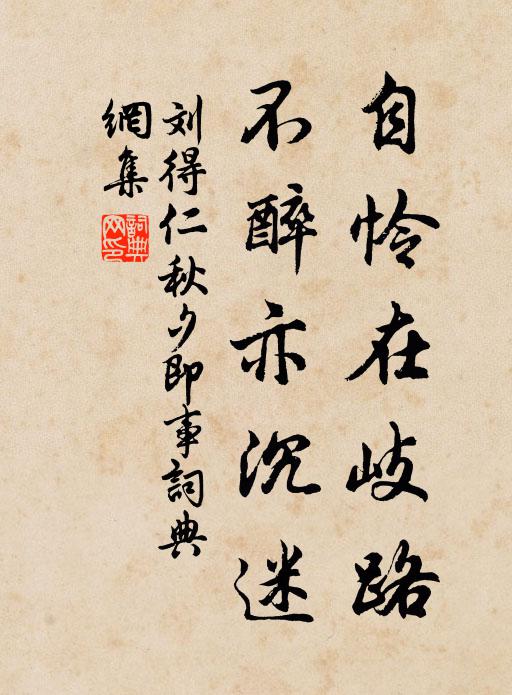 自怜在岐路
不醉亦沉迷
刘得仁秋夕即事詞典
網集
詞典网印